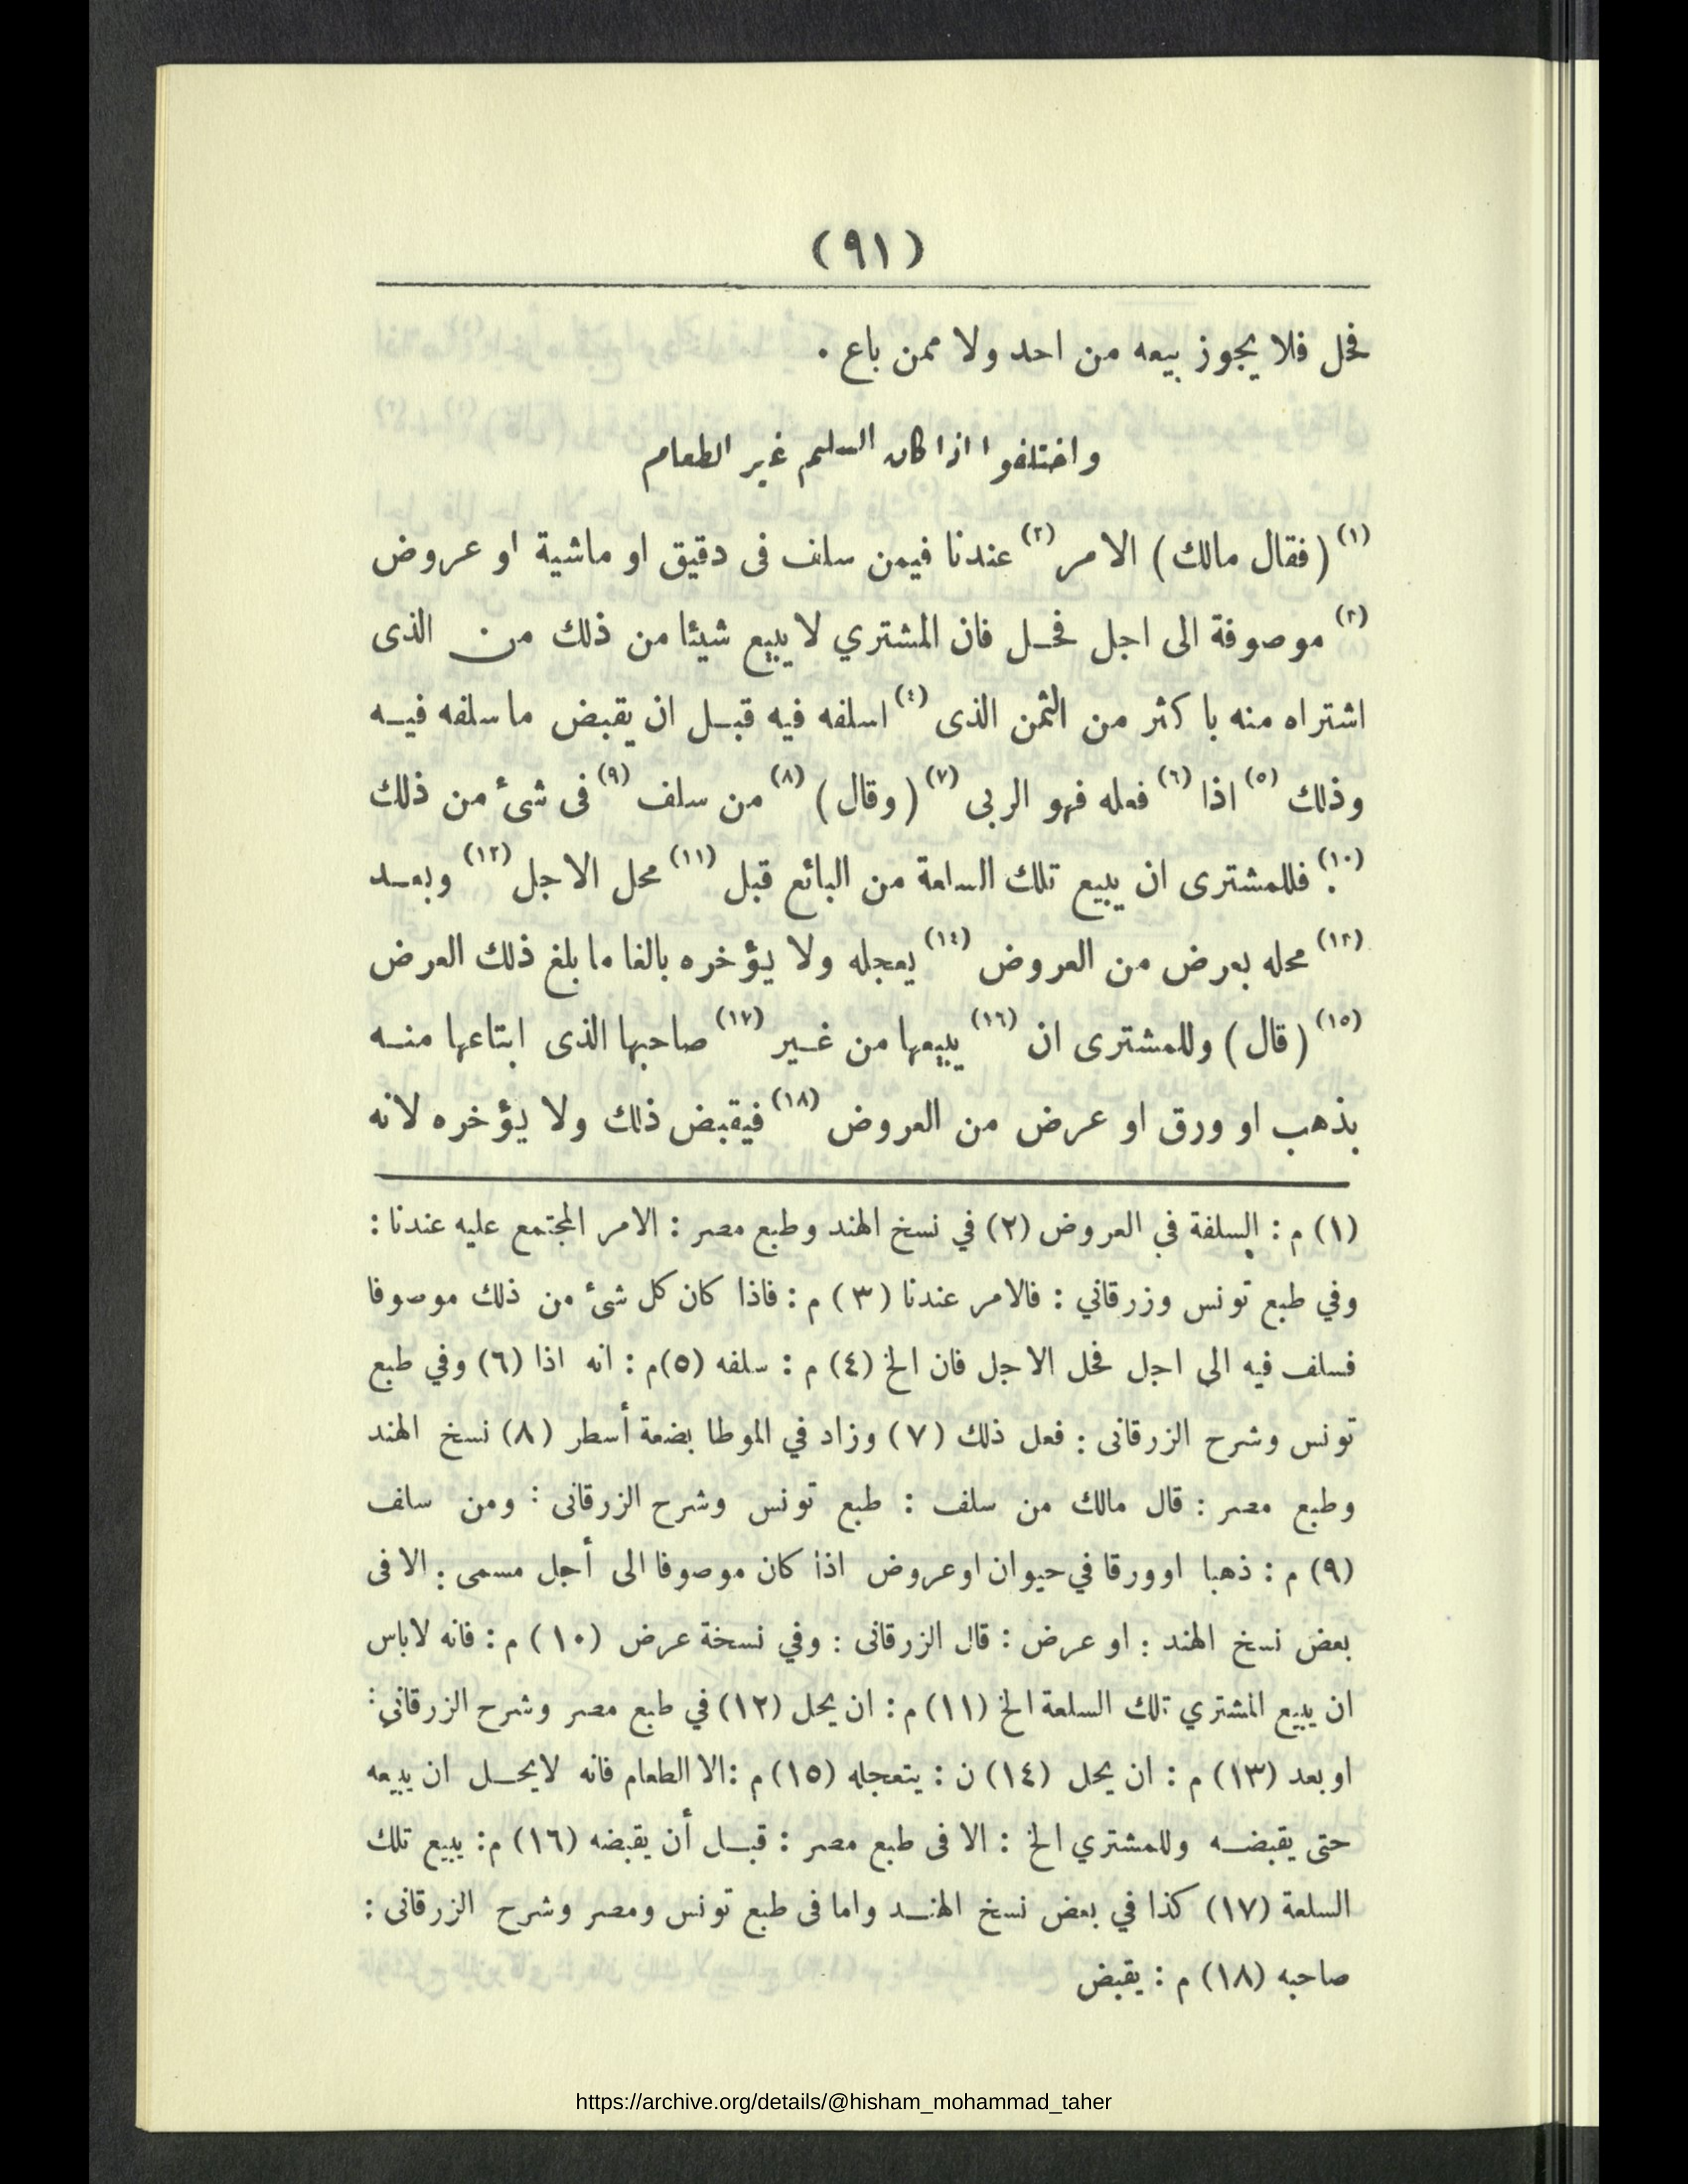 (٩١)
فحل فلا يجوز بيعه من احد ولا ممن باع .
واختلفوا اذا كان السلم غير الطعام
(١) (فقال مالك) الامر (٢) عندنا فيمن سلف فى دقيق او ماشية او عروض
(٣) موصوفة الى اجل فحل فان المشتري لا يبيع شيئا من ذلك من الذى
اشتراه منه باكثر من الثمن الذى (٤) اسلفه فيه قبل ان يقبض ما سلفه فيه
وذلك (٥) اذا (٦) فعله فهو الربى (٧) (وقال) (٨) من سلف (٩) فى شئ من ذلك
(١٠) فللمشترى ان يبيع تلك السلعة من البائع قبل (١١) محل الاجل (١٢) وبعد
(١٣) محله بعرض من العروض (١٤) يعجله ولا يؤخره بالغا ما بلغ ذلك العرض
(١٥) (قال) وللمشترى ان (١٦) يبيعها من غير (١٧) صاحبها الذى ابتاعها منه
بذهب او ورق او عرض من العروض (١٨) فيقبض ذلك ولا يؤخره لانه
(١) م : السلفة في العروض (٢) في نسخ الهند وطبع مصر : الامر المجتمع عليه عندنا :
وفي طبع تونس وزرقاني : فالامر عندنا (٣) م : فاذا كان كل شئ من ذلك موصوفا
فسلف فيه الى اجل فحل الاجل فان الخ (٤) م : سلفه (٥) م : انه اذا (٦) وفي طبع
تونس وشرح الزرقانى : فعل ذلك (٧) وزاد في الموطا بضعة أسطر (٨) نسخ الهند
وطبع مصر : قال مالك من سلف : طبع تونس وشرح الزرقانى : ومن سلف
(٩) م : ذهبا او ورقا في حيوان او عروض اذا كان موصوفا الى أجل مسمى : الا فى
بعض نسخ الهند : او عرض : قال الزرقانى : وفي نسخة عرض (١٠) م : فانه لا باس
ان يبيع المشتري تلك السلعة الخ (١١) م : ان يحل (١٢) في طبع مصر وشرح الزرقاني :
او بعد (١٣) م : ان يحل (١٤) ن : يتعجله (١٥) م : الا الطعام فانه لا يحل ان يبيعه
حتى يقبضه وللمشتري الخ : الا فى طبع مصر : قبل أن يقبضه (١٦) م : يبيع تلك
السلعة (١٧) كذا في بعض نسخ الهند واما فى طبع تونس ومصر وشرح الزرقانى :
صاحبه (١٨) م : يقبض
https://archive.org/details/@hisham_mohammad_taher